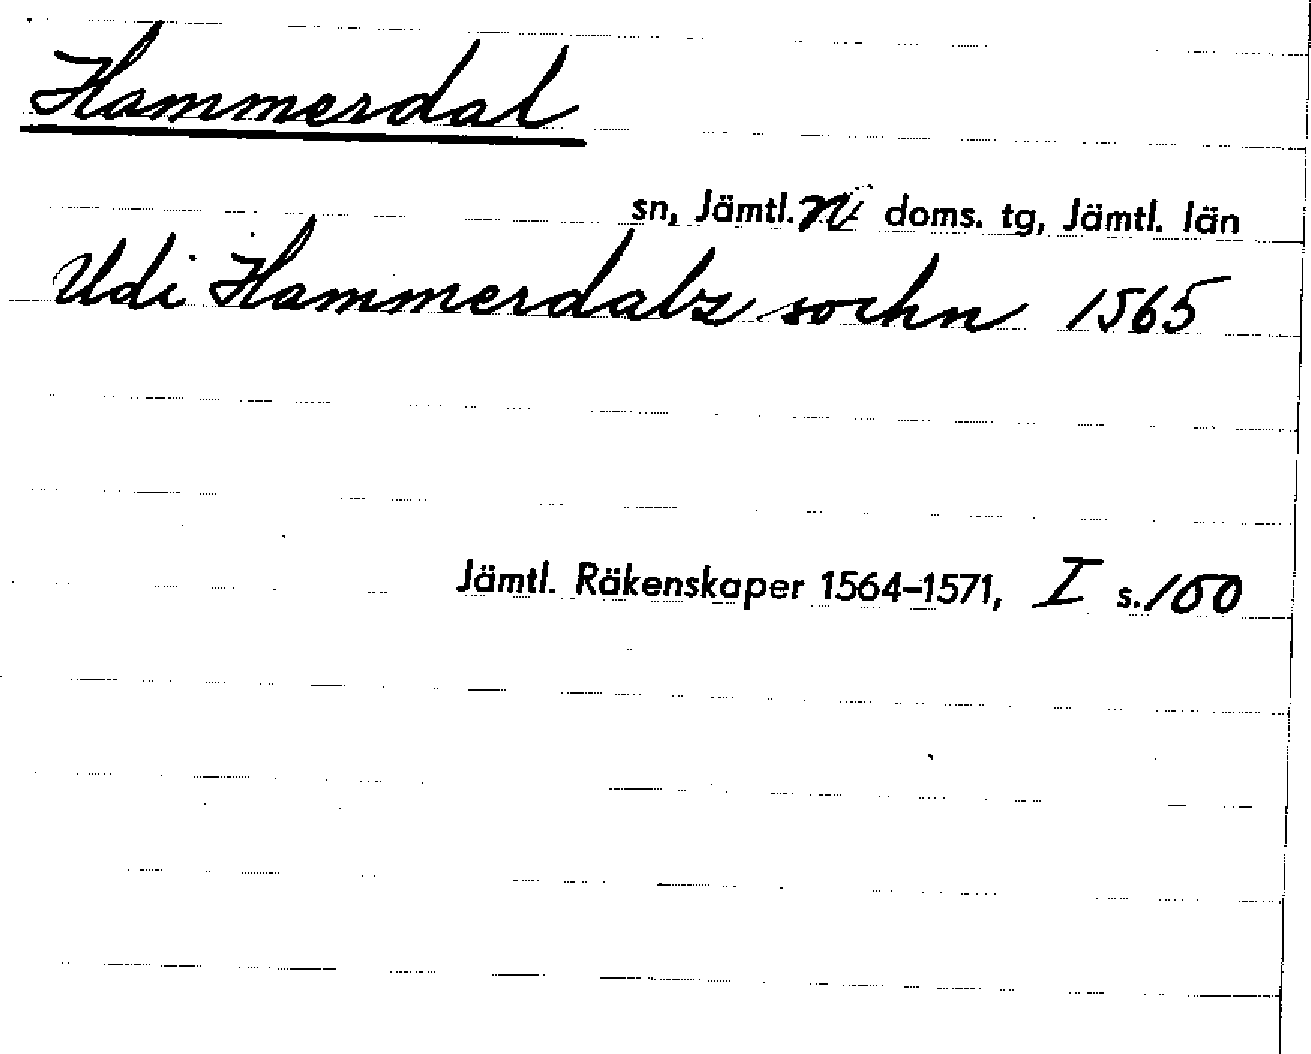 Hammerdal
sn, Jämtl. N. doms. tg, Jämtl. län
Udi Hammerdalz sochn 1565
Jämtl. Räkenskaper 1564–1571, I s. 100